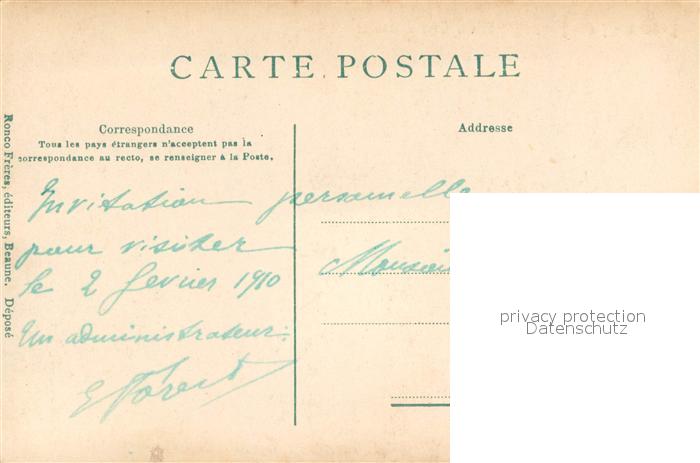 CARTE POSTALE
Correspondance
Tous les pays étrangers n'acceptent pas la
correspondance au recto, se renseigner à la Poste.
Addresse
Invitation personnelle
pour visiter
le 2 fevrier 1910
Un administrateur:
Ronco Frères, éditeurs, Beaune. Déposé
privacy protection
Datenschutz